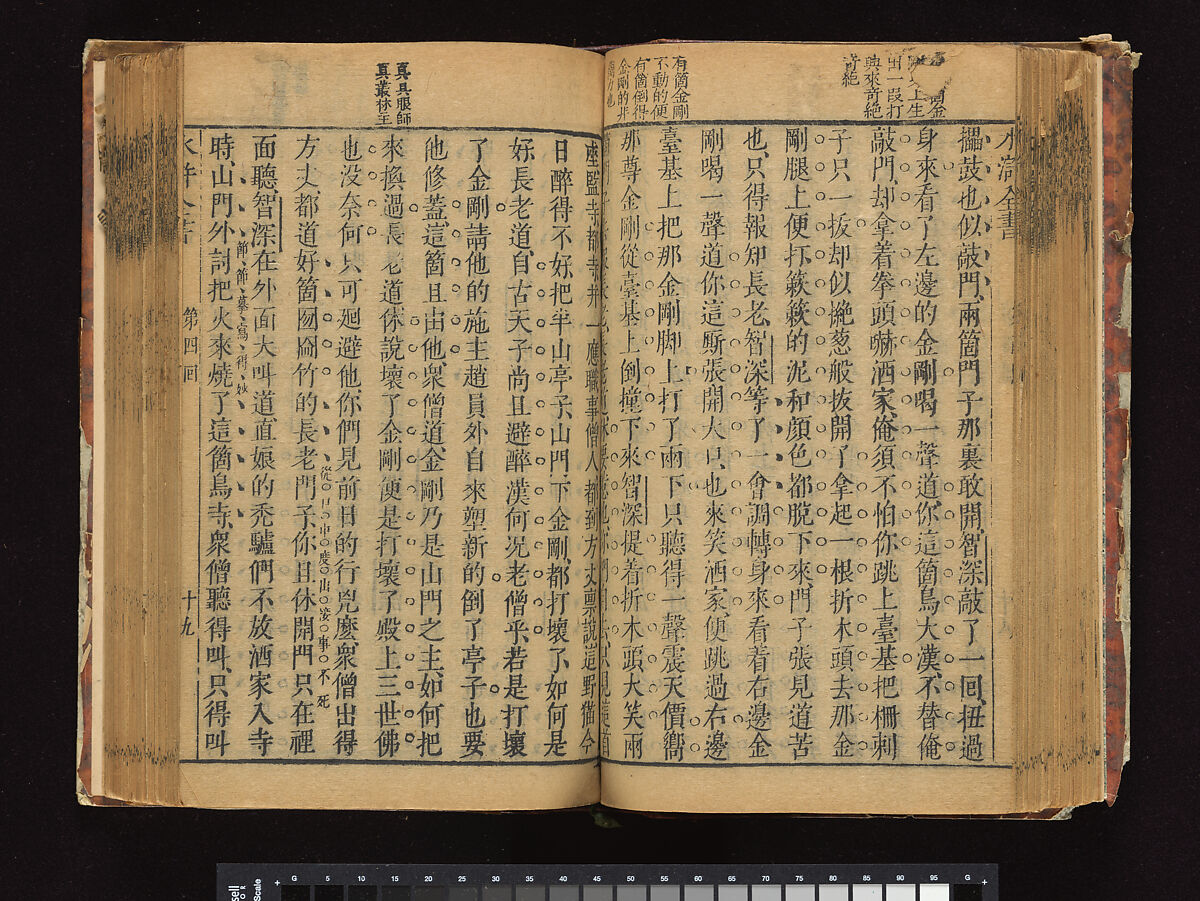 水滸全書
擂鼓也似敲門、兩箇門子那裏敢開、智深敲了一回、扭過
身來看了左邊的金剛喝一聲道、你這箇鳥大漢、不替俺
敲門、却拿着拳頭嚇洒家、俺須不怕你、跳上臺基把柵剌
子只一拔、却似撧葱般拔開了、拿起一根折木頭去那金
剛腿上便打、簌簌的泥和顏色都脫下來、門子張見道苦
也、只得報知長老、智深等了一會、調轉身來看着右邊金
剛喝一聲道、你這廝張開大口、也來笑洒家、便跳過右邊
臺基上把那金剛脚上打了兩下、只聽得一聲震天價嚮
那尊金剛從臺基上倒撞下來、智深提着折木頭大笑、兩
有箇金剛
不動的便
有箇倒得
金剛的
興來奇絕
奇絕
座監寺都寺并一應職事僧人都到方丈禀說、這野猫今
日醉得不好、把半山亭子、山門下金剛、都打壞了、如何是
好、長老道、自古天子尚且避醉漢、何况老僧乎、若是打壞
了金剛、請他的施主趙員外自來塑新的、倒了亭子、也要
他修蓋、這箇且由他、衆僧道、金剛乃是山門之主、如何把
來換過、長老道、休說壞了金剛、便是打壞了殿上三世佛
也没奈何、只可廻避他、你們見前日的行兇麼、衆僧出得
方丈、都道好箇囫圇竹的長老、門子、你且休開門、只在裡
從口中度出、接事不死
面聽、智深在外面大叫道、直娘的禿驢們、不放洒家入寺
節節摹寫得妙
時、山門外討把火來燒了這箇鳥寺、衆僧聽得叫、只得叫
真具眼師
真叢林主
第四囘
十九